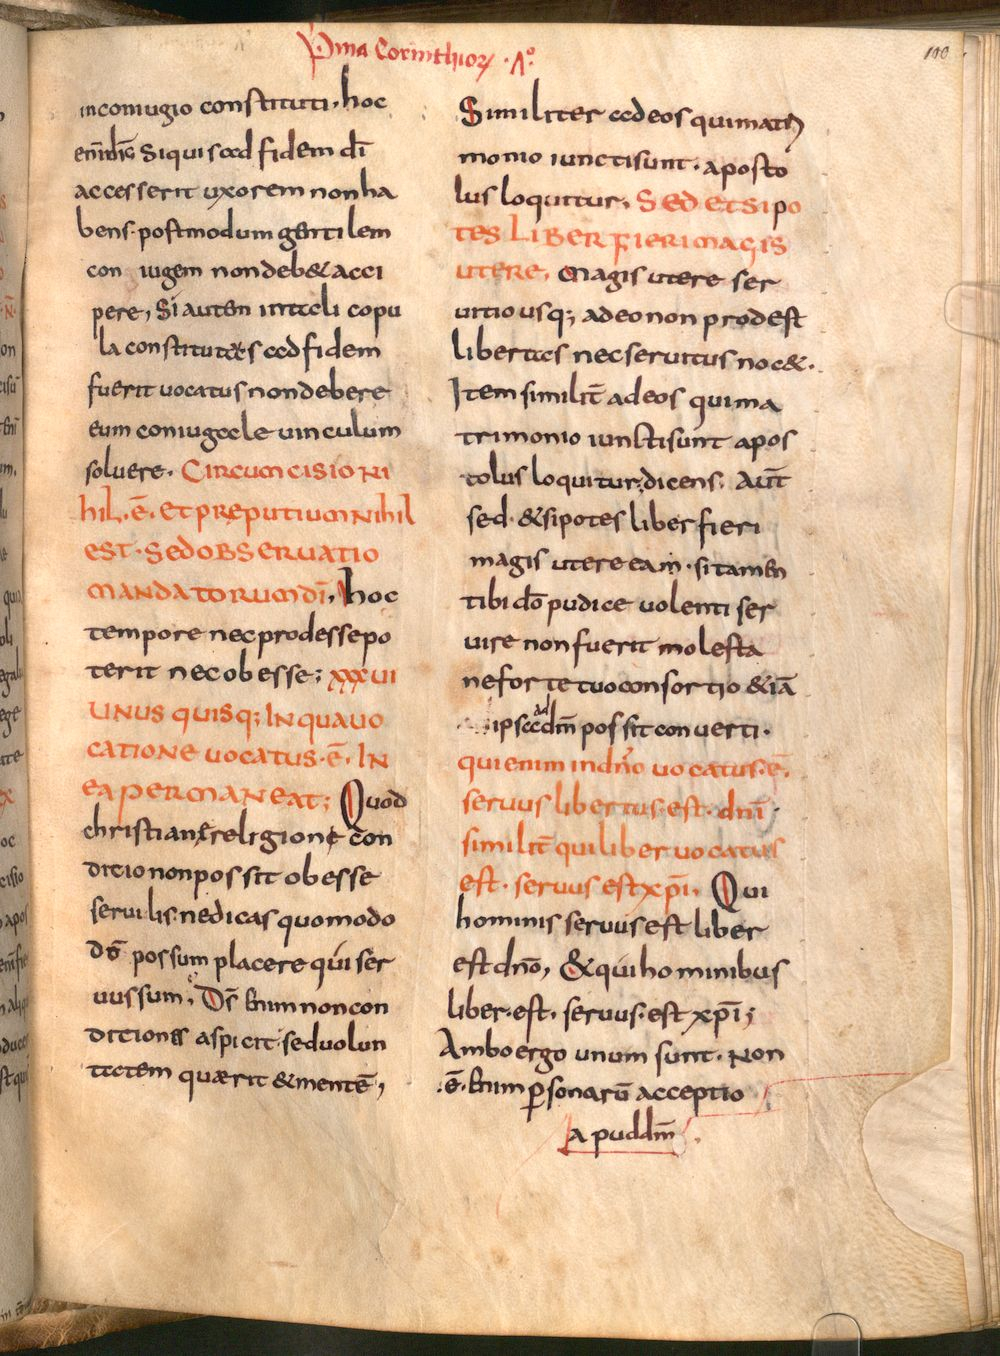 P̱ma Corinthioꝝ · A°
100
inconiugio constituti, hoc
eni dic̄ Siquis ad fidem dī
accesserit uxorem non ha
bens postmodum gentilem
con iugem non deb& acci
pere, Si autem initali copu
la constitutus ad fidem
fuerit uocatus non debere
eum coniugale uinculum
soluere. Circumcisio ni
hil·ē·et preputium nihil
est· sed obseruatio
mandatorum dī, hoc
tempore nec prodesse po
terit nec obesse; xxxvi
unus quisq; In qua uo
catione uocatus·ē· In
ea permaneat; Quod
christianę religione con
ditio non possit obesse
seruilis· ne dicas quomodo
dō possum placere qui ser
uus sum, Ds̄ enim non con
ditiones aspicit· sed uolun
tatem quærit &mentē,
Similiter ad eos qui matri
monio iuncti sunt· aposto
lus loquitur, Sed et si po
tes liber fieri magis
utere, magis utere ser
uitio usq; adeo non prodest
libertas nec seruitus noc&.
Item similit̄ ad eos qui ma
trimonio iuncti sunt apos
tolus loquitur; dicens, Aut̄
sed &si potes liber fieri
magis utere eam· si tamen
tibi dō pudice uolenti ser
uire non fuerit molesta
ne forte tuo consortio &iā
ipsa ad dm̄ possit conuerti·
qui enim in dn̄o uocatus·ē,
seruus libertus·est·dn̄i·
similit̄ qui liber uocatus
est· seruus est xp̄i, Qui
hominis seruus est liber
est dn̄o, &qui hominibus
liber·est, seruus·est xp̄i;
Ambo ergo unum sunt· Non
·ē·enim ꝑsonarū acceptio
apud dm̄